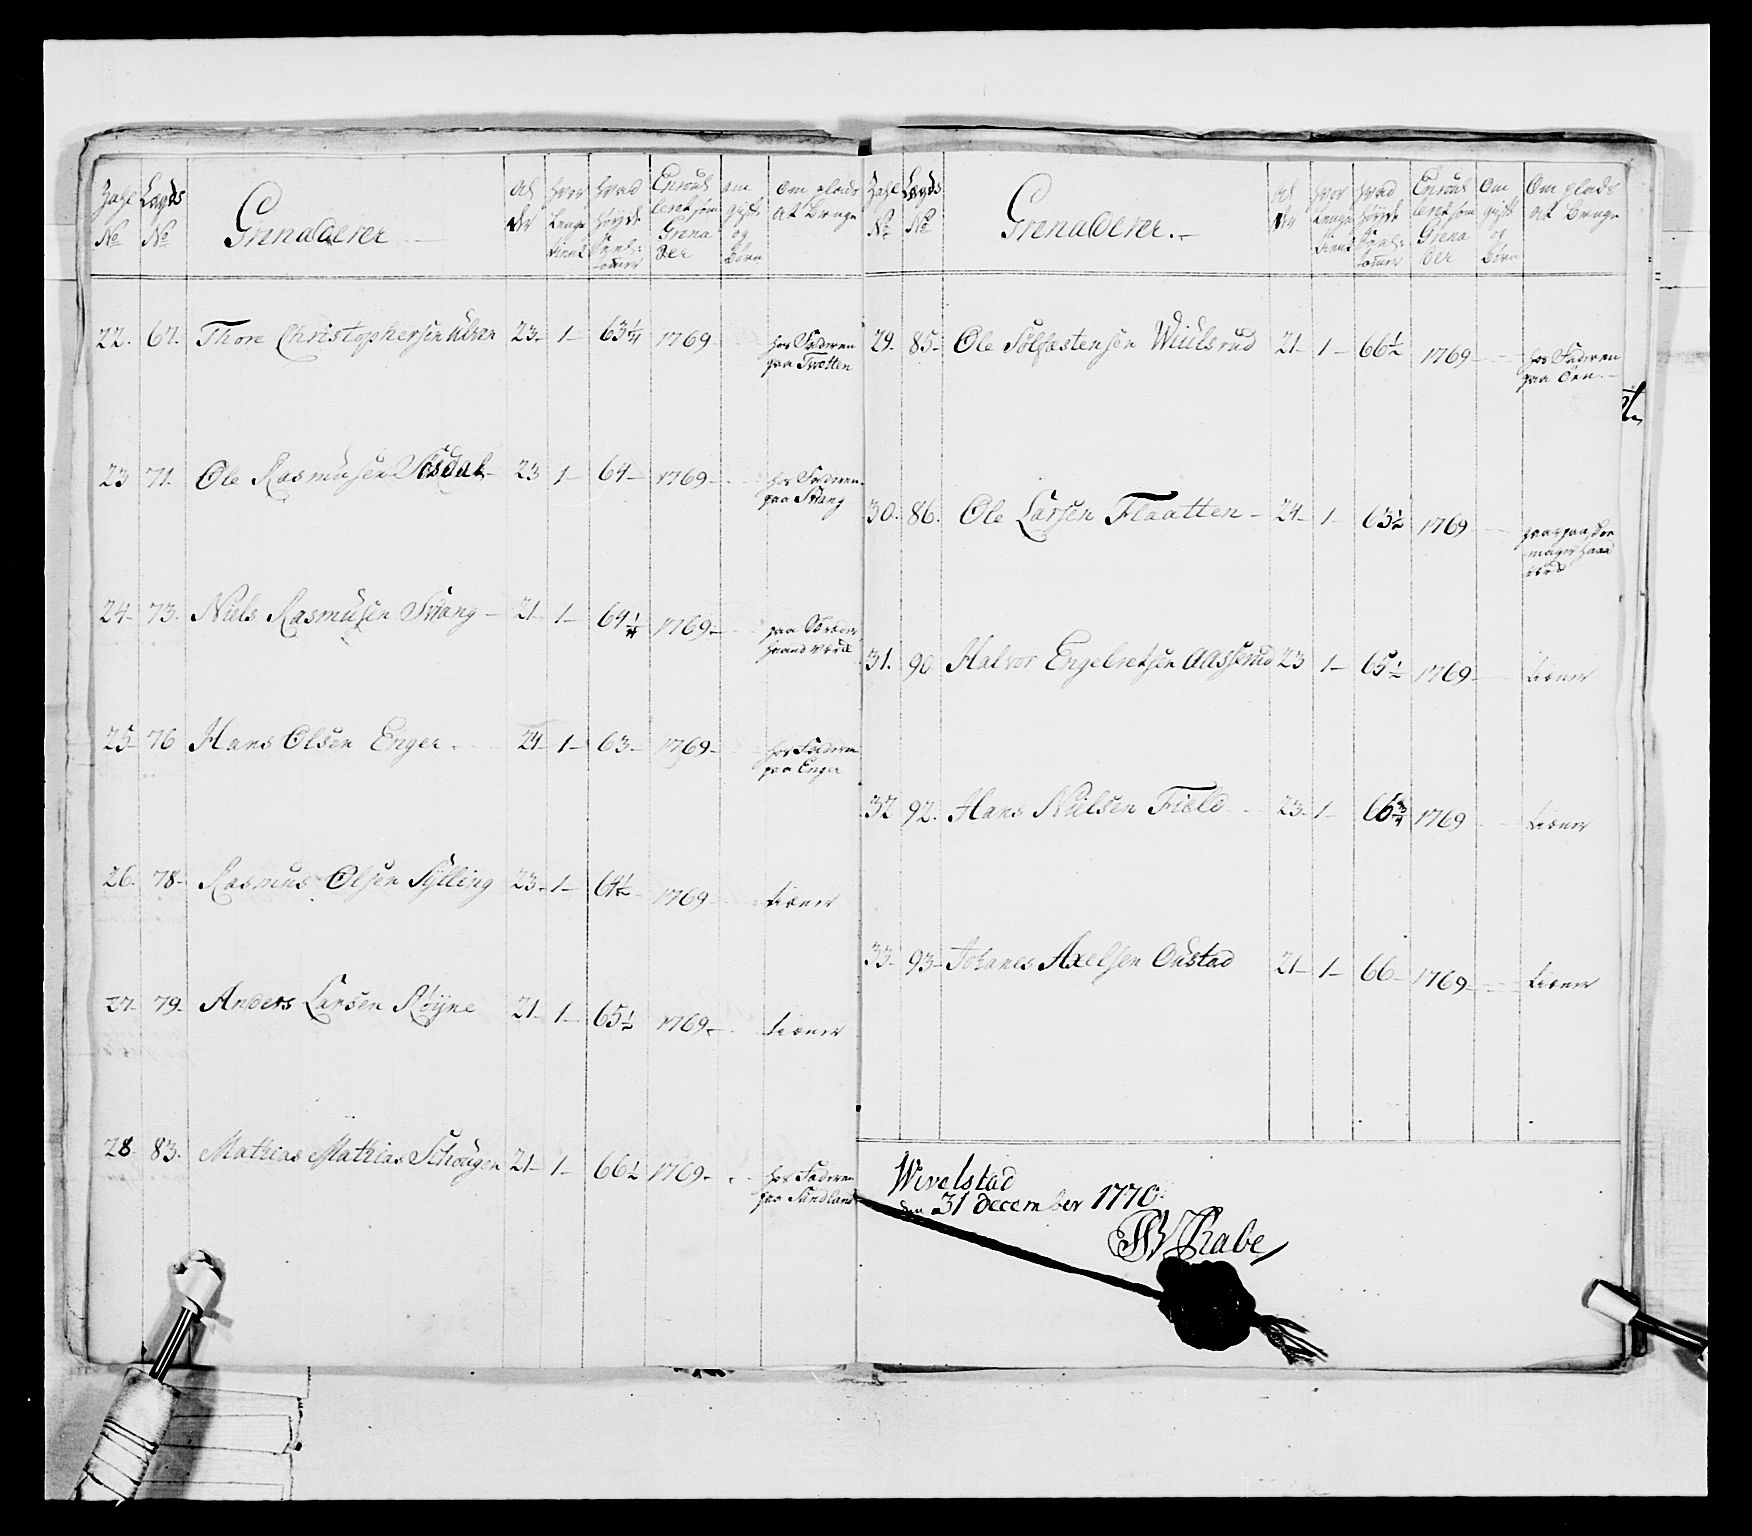 Zahl No Lægds No Grenaderer Al der hvor Lenge tient hvad Høyde Enroul leret som Grena der om gift og Børn Om plads At Bruge
22. 67. Thore Christophersen 23 1 63 1/4 1769 hos Faderen paa Tvetten
23 71. Ole Rasmusen Sosdal 23 1 64 1769 hos Faderen paa Svang
24 73. Niels Rasmusen Svang 21 1 64 1/4 1769 paa haandværk
25 76 Hans Olsen Enger 24 1 63 1769 hos Faderen paa Enger
26. 78 Rasmus Olsen Sylling 23 1 64 1/2 1769 tiener
27 79 Anders Larsen Røyne 21 1 65 1/2 1769 tiener
28 83. Mathias Mathias Schougen 21 1 66 1/2 1769 hos Faderen paa Sundland
Zahl No Lægds No Grenaderer. Al der hvor Lenge tient hvad Høyde Enroul leret som Grena der Om gift og Børn Om plads At Bruge
29. 85 Ole Solfæstensen Wiulsrud 21 1 66 1/2 1769 hos Faderen paa Øen
30. 86. Ole Larsen Flaatten 24 1 63 1/2 1769
31. 90 Halvor Engebretsen Aasserud 23 1 65 1/2 1769 tiener
32 92. Hans Nielsen Field 23 1 66 3/4 1769 tiener
33 93 Johanes Axelsen Onstad 21 1 66 1769 tiener
Wivelstad
den 31 December 1770
Rabe